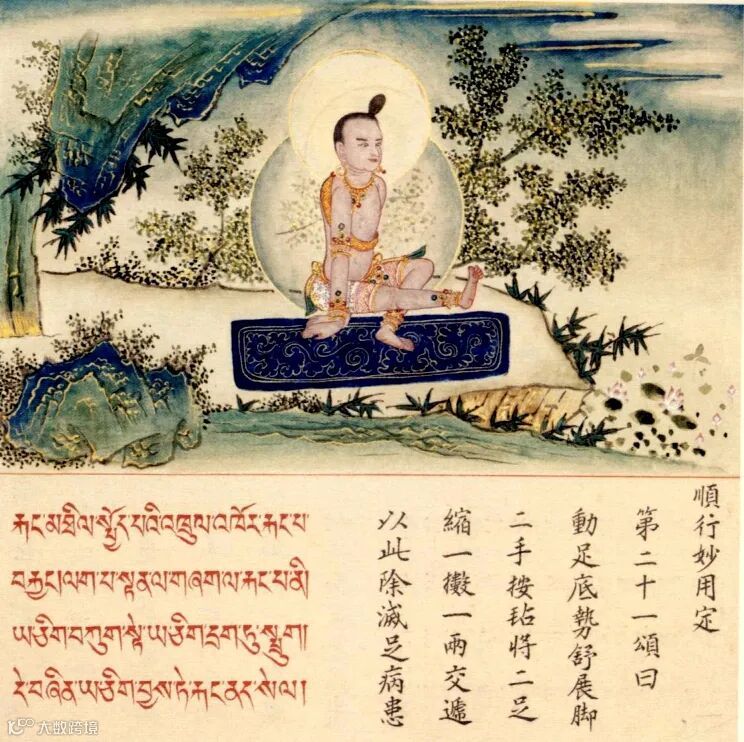 རྐང་མཐིལ་སྦྱོར་བའི་འཁྲུལ་འཁོར་རྐང་པ་
བརྐྱང་ལག་པ་སྟན་ལ་གཞག་ལ་རྐང་པ་ནི།
ཡ་ཅིག་བཀུག་སྟེ་ཡ་ཅིག་དྲག་ཏུ་སྤྲུག།
དེ་བཞིན་ཡ་ཅིག་བྱས་ཏེ་རྐང་ནད་སེལ།
順行妙用定
第二十一頌曰
動足底勢舒展脚
二手按將二足
縮一擻一兩交遞
以此除滅足病患
大数跨境